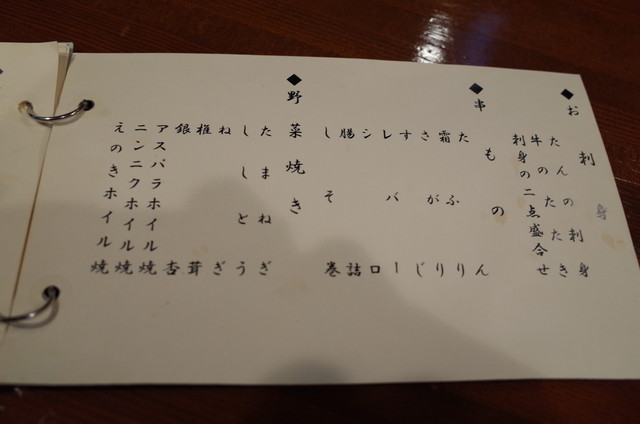 ◆お刺身
たんの刺身
牛のたたき
刺身の二点盛合せ
◆串もの
たん
霜ふり
さがり
すじ
レバー
シロ
腸詰
しそ巻
◆野菜焼き
たまねぎ
ししとう
ねぎ
椎茸
銀杏
アスパラホイル焼
ニンニクホイル焼
えのきホイル焼